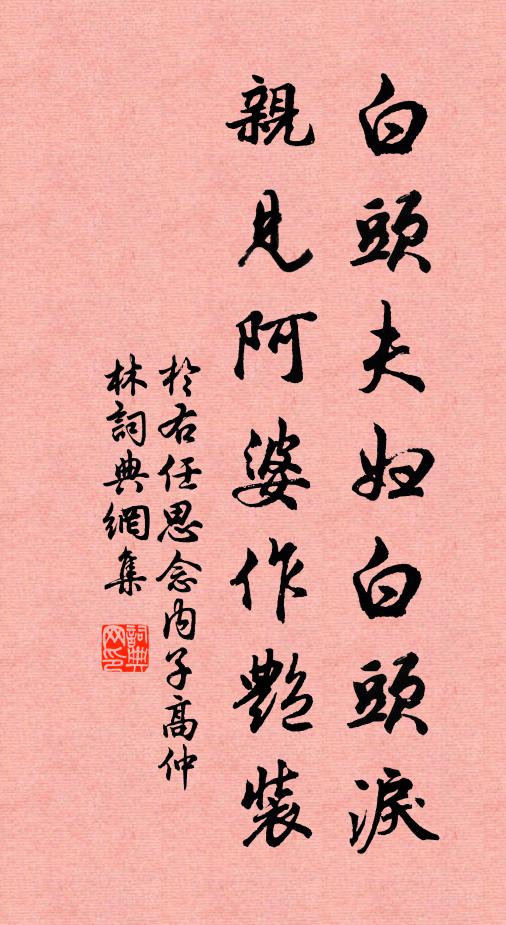 白頭夫妇白頭淚
親見阿婆作艷裝
於右任思念内子高仲
林詞典網集
詞典
网印